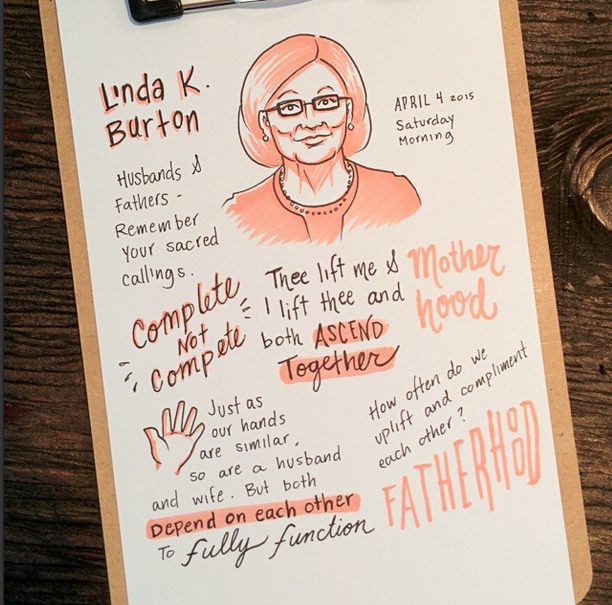 Linda K.
Burton
APRIL 4 2015
Saturday
Morning
Husbands &
Fathers -
Remember
your sacred
callings.
Complete
Not
Compete
Thee lift me &
I lift thee and
both ASCEND
Together
Mother
hood
Just as
our hands
are similar,
so are a husband
and wife. But both
Depend on each other
To fully function
How often do we
uplift and compliment
each other?
FATHERHOOD